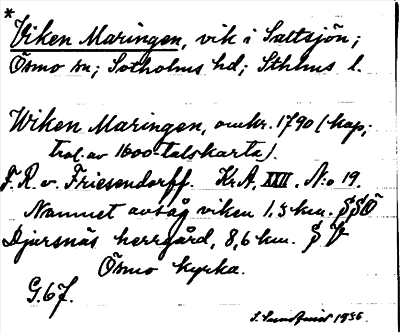 *
Viken Maringen, vik i Saltsjön;
Ösmo sn; Sotholms hd; Sthlms l.
Wiken Maringen, omkr. 1790 (kop;
trol. av 1600-talskarta).
F. R. v. Friesendorff. Kr.A, XXIII. N:o 19.
Namnet avsåg viken 1,5 km. SSÖ
Djursnäs herrgård, 8,6 km. S
Ösmo kyrka.
G.67.
1936